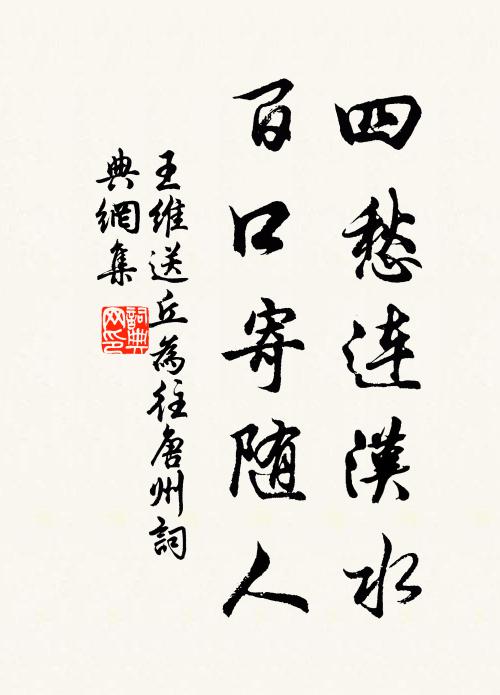 四愁连漢水
百口寄随人
王維送丘為往唐州詞
典網集
詞典
网印